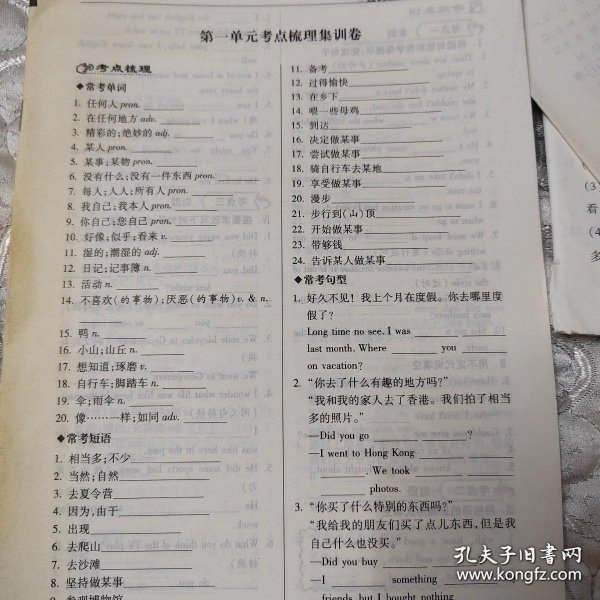 第一单元考点梳理集训卷
考点梳理
◆常考单词
1. 任何人 pron.
2. 在任何地方 adv.
3. 精彩的;绝妙的 adj.
4. 某人 pron.
5. 某事;某物 pron.
6. 没有什么;没有一件东西 pron.
7. 每人;人人;所有人 pron.
8. 我自己;我本人 pron.
9. 你自己;您自己 pron.
10. 好像;似乎;看来 v.
11. 湿的;潮湿的 adj.
12. 日记;记事簿 n.
13. 活动 n.
14. 不喜欢(的事物);厌恶(的事物) v. & n.
15. 鸭 n.
16. 小山;山丘 n.
17. 想知道;琢磨 v.
18. 自行车;脚踏车 n.
19. 伞;雨伞 n.
20. 像……一样;如同 adv.
◆常考短语
1. 相当多;不少
2. 当然;自然
3. 去夏令营
4. 因为,由于
5. 出现
6. 去爬山
7. 去沙滩
8. 坚持做某事
9. 参观博物馆
11. 备考
12. 过得愉快
13. 在乡下
14. 喂一些母鸡
15. 到达
16. 决定做某事
17. 尝试做某事
18. 骑自行车去某地
19. 享受做某事
20. 漫步
21. 步行到(山)顶
22. 开始做某事
23. 带够钱
24. 告诉某人做某事
◆常考句型
1. 好久不见！我上个月在度假。你去哪里度
假了?
Long time no see. I was
last month. Where ______ you ______
on vacation?
2. “你去了什么有趣的地方吗?”
“我和我的家人去了香港。我们拍了相当
多的照片。”
—Did you go ______?
—I went to Hong Kong
______. We took
photos.
3. “你买了什么特别的东西吗?”
“我给我的朋友们买了点儿东西,但是我
自己什么也没买。”
—Did you buy
—I ______ something
friends, but I bought nothing
(3
看
(4
多
孔夫子旧书网
www.kongfz.com